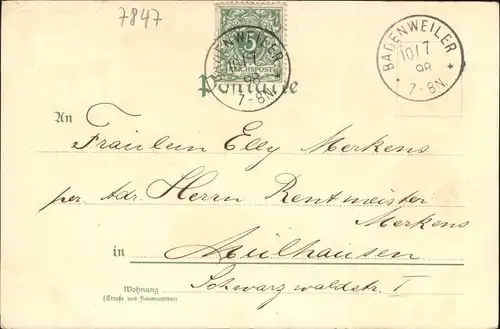 7847
5
REICHSPOST
BADENWEILER
10/7
98
7-8N.
BADENWEILER
10/7
98
* 7-8N. *
Postkarte
An
Fräulein Elly Merkens
per. Adr. Herrn Rentmeister
Merkens
in Mülhausen
Wohnung
(Straße und Hausnummer)
Schwarzwaldstr. I